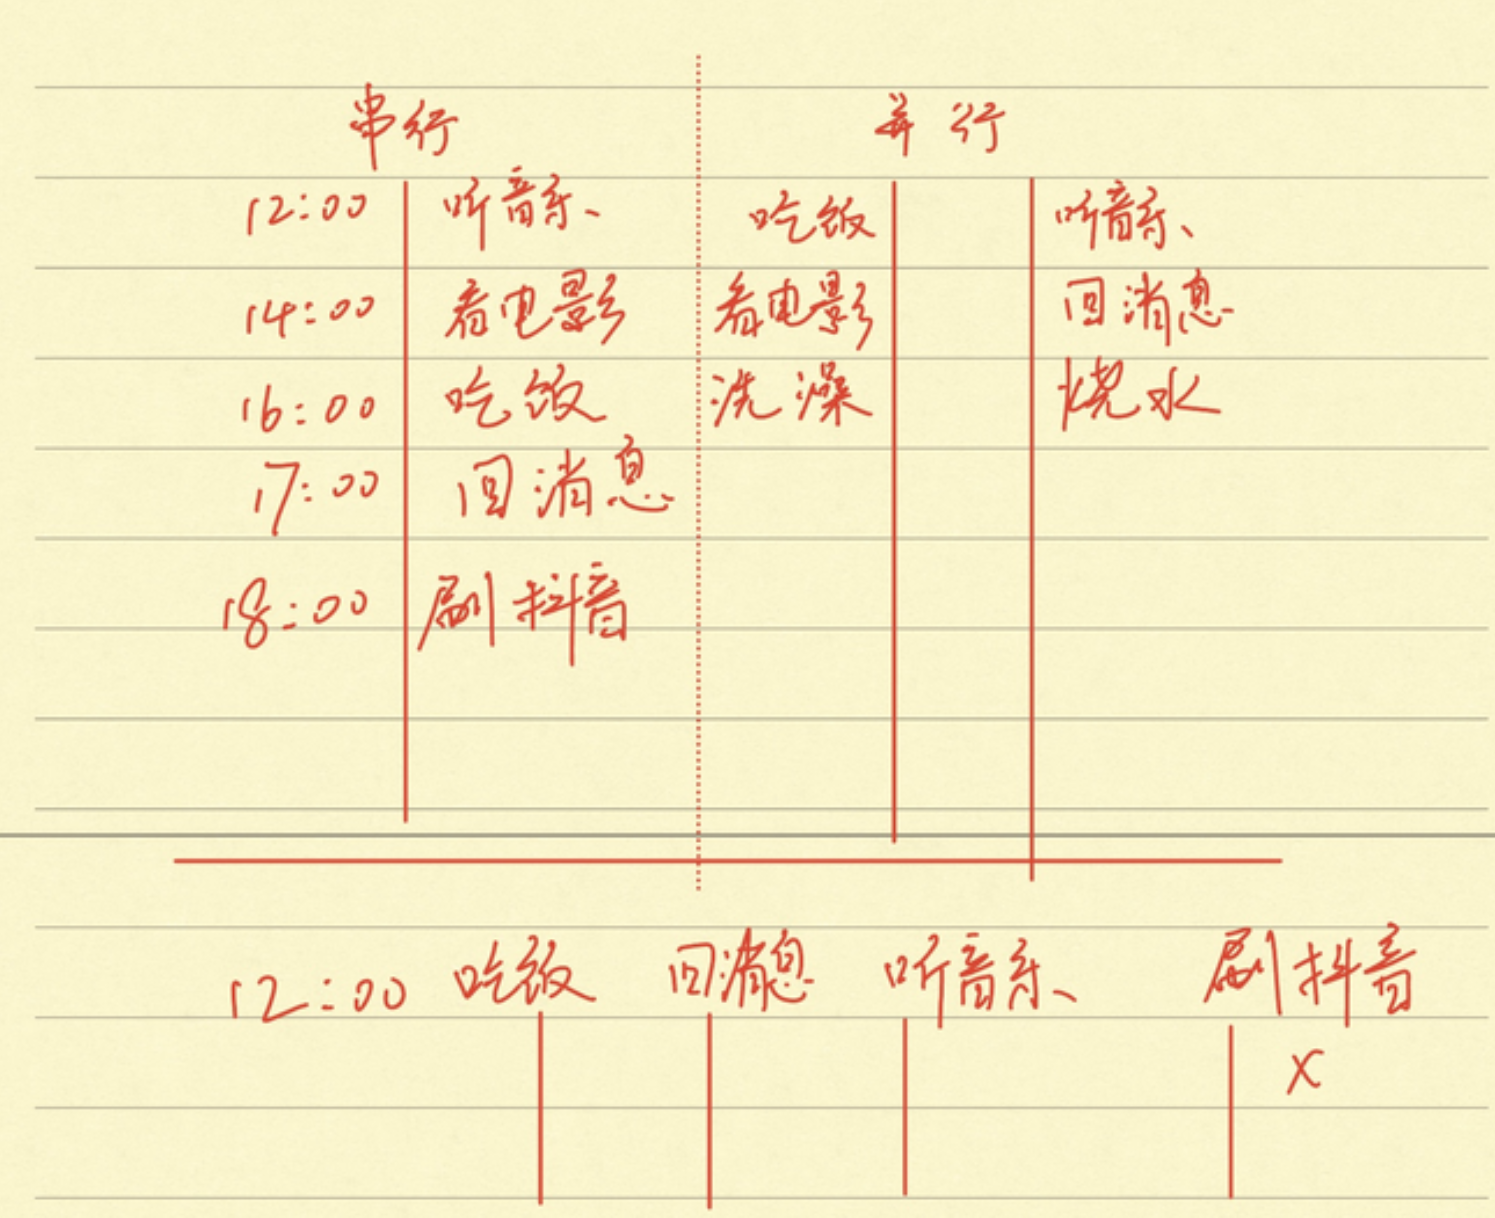 串行 并行
12:00 听音乐 吃饭 听音乐
14:00 看电影 看电影 回消息
16:00 吃饭 洗澡 烧水
17:00 回消息
18:00 刷抖音
12:00 吃饭 回消息 听音乐 刷抖音
x